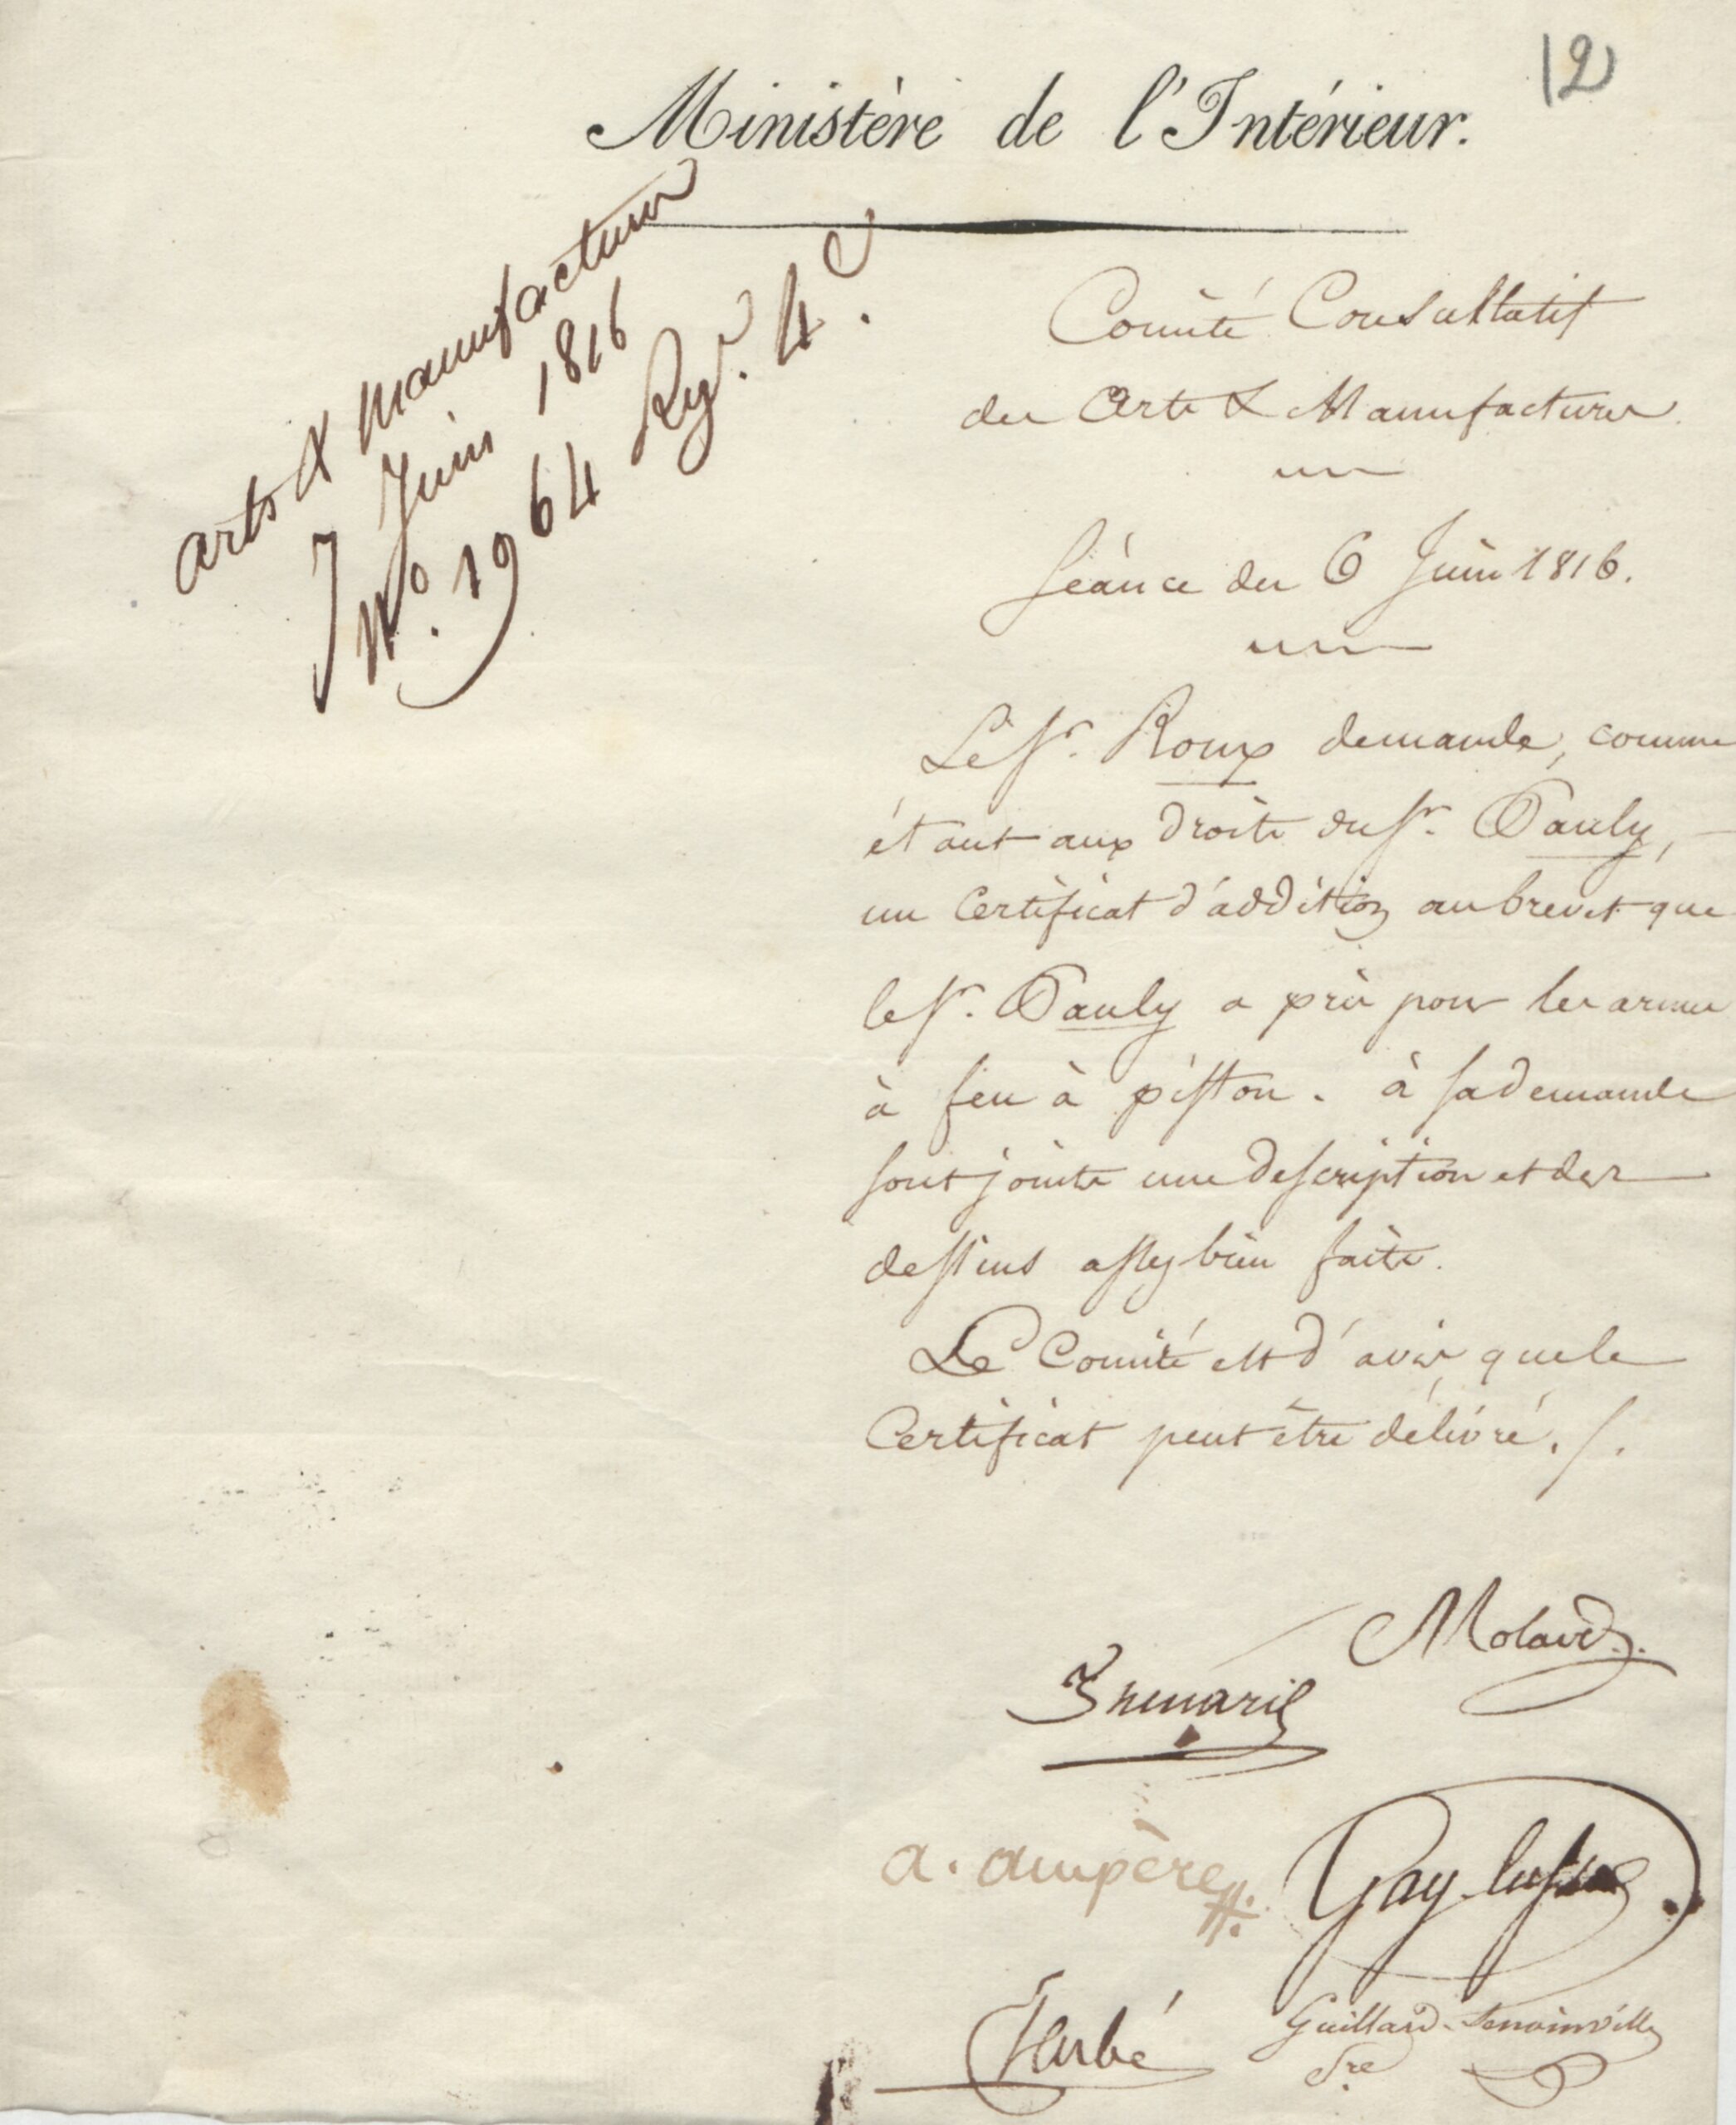 12
Ministère de l'Intérieur.
arts & manufactures
7 Juin 1816
N.º 1964 Reg.e 4.e
Comité Consultatif
des Arts & Manufactures.
Séance du 6 Juin 1816.
Le Sr. Roux demande, comme
étant aux droits du Sr. Pauly,
un certificat d'addition au brevet que
le Sr. Pauly a pris pour les armes
à feu à piston. à sa demande
sont joints une description et des
dessins assez bien faits.
Le Comité est d'avis que le
Certificat peut être délivré./.
Molard
Thenard
a. ampère
Gay-lussac
Guillard-Senainville
Sre